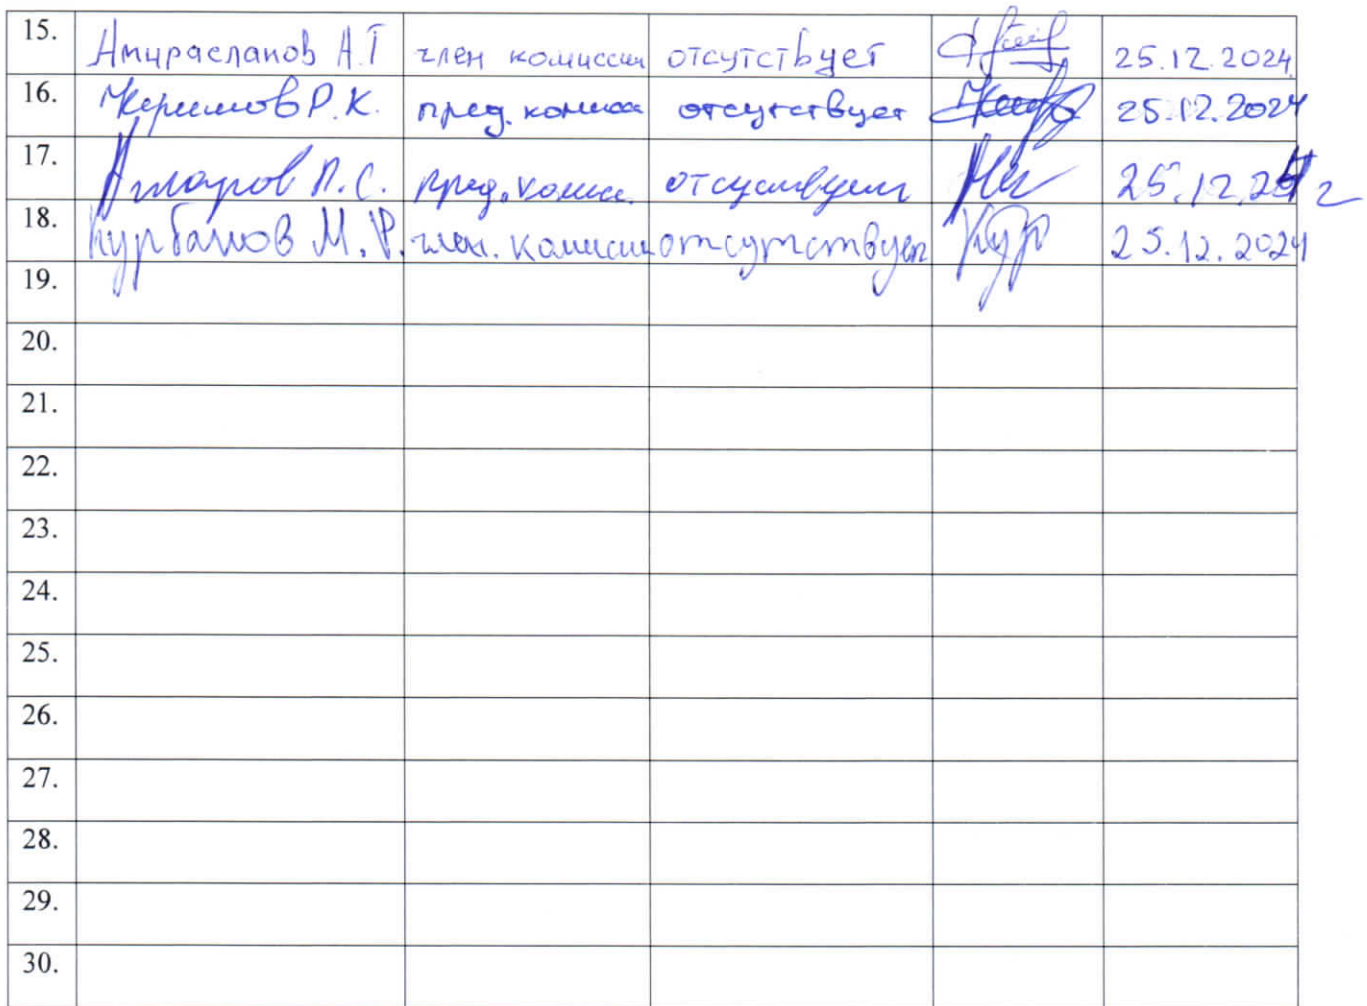 15. Амирасланов А.Г член комиссии отсутствует 25.12.2024
16. Керимов Р.К. пред. комисс отсутствует 25.12.2024
17. П.С. пред. комисс. отсутствует 25.12.24 г
18. Курбанов М.Р. член. комисии отсутствует Кур 25.12.2024
19.
20.
21.
22.
23.
24.
25.
26.
27.
28.
29.
30.